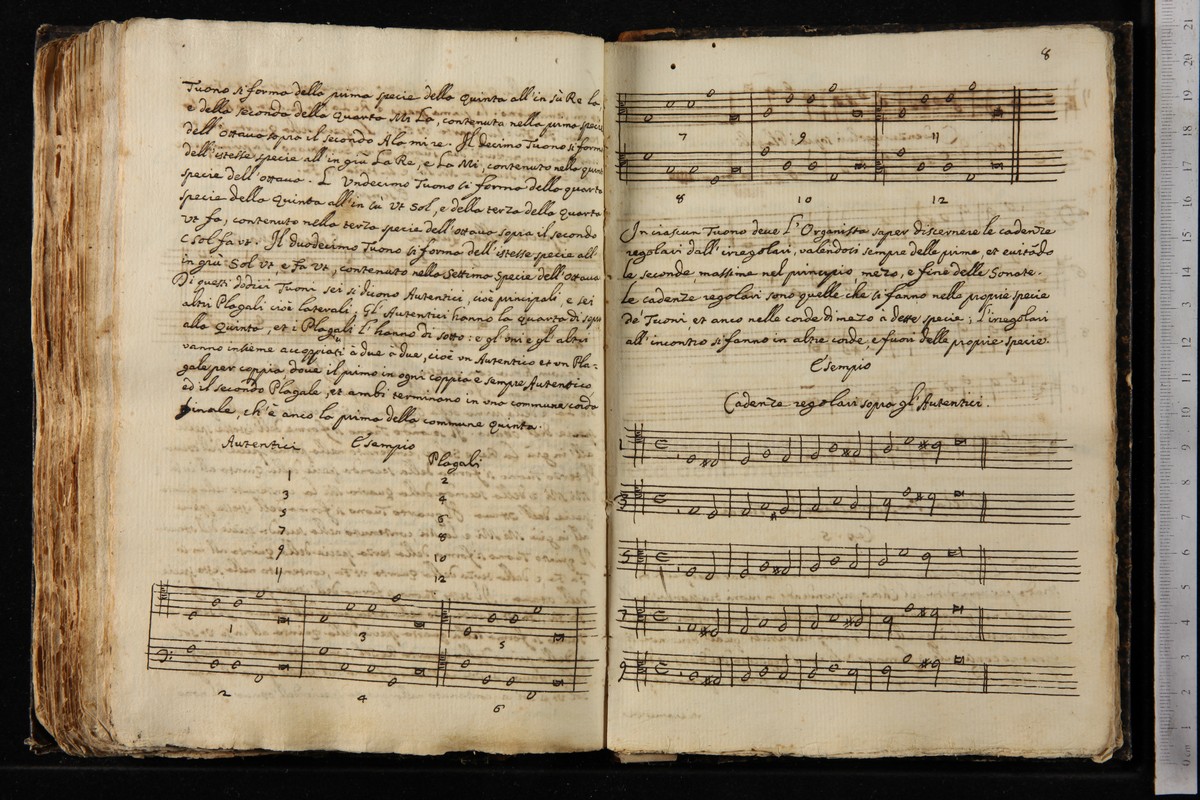 Tuono si forma della prima specie della Quinta all'in sù Re la,
e della seconda della Quarta Mi La, contenuta nella prima specie
dell'ottava sopra il secondo A la mi re. Il decimo Tuono si forma
dell'istesse specie all'in giù La Re, e La Mi, contenuto nella quin
specie dell'ottava. L'Undecimo Tuono si forma della quarta
specie della Quinta all'in sù Ut Sol, e della terza della Quarta
Ut fa, contenuto nella terza specie dell'ottava sopra il secondo
C sol fa ut. Il duodecimo Tuono si forma dell'istesse specie all'
in giù Sol Ut, e fa Ut, contenuto nella Settima Specie dell'Ottava
Di questi dodici Tuoni sei si dicono Autentici, cioè principali, e sei
altri Plagali cioè laterali. Gli Autentici hanno la quarta di sopra
alla Quinta, et i Plagali l'hanno di sotto: e gl'uni e gl'altri
vanno insieme accoppiati à due à due, cioè un Autentico et un Pla-
gale per coppia dove il primo in ogni coppia è sempre Autentico
ed il secondo Plagale, et ambi terminano in una commune corda
finale, ch'è anco la prima della commune quinta.
Autentici Esempio
Plagali
1 2
3 4
5 6
7 8
9 10
11 12
1 3 5
2 4 6
8
7 9 11
8 10 12
In ciascun Tuono deve l'Organista saper discernere le cadenze
regolari dall'irregolari, valendosi sempre delle prime, et evitãdo
le seconde, massime nel principio, mezo, e fine delle Sonate.
Le cadenze regolari sono quelle che si fanno nelle proprie specie
de' Tuoni, et anco nelle corde di mezo à dette specie; l'irregolari
all'incontro si fanno in altre corde, e fuori delle proprie specie.
Esempio
Cadenze regolari sopra gl'Autentici.
1
3
5
7
9